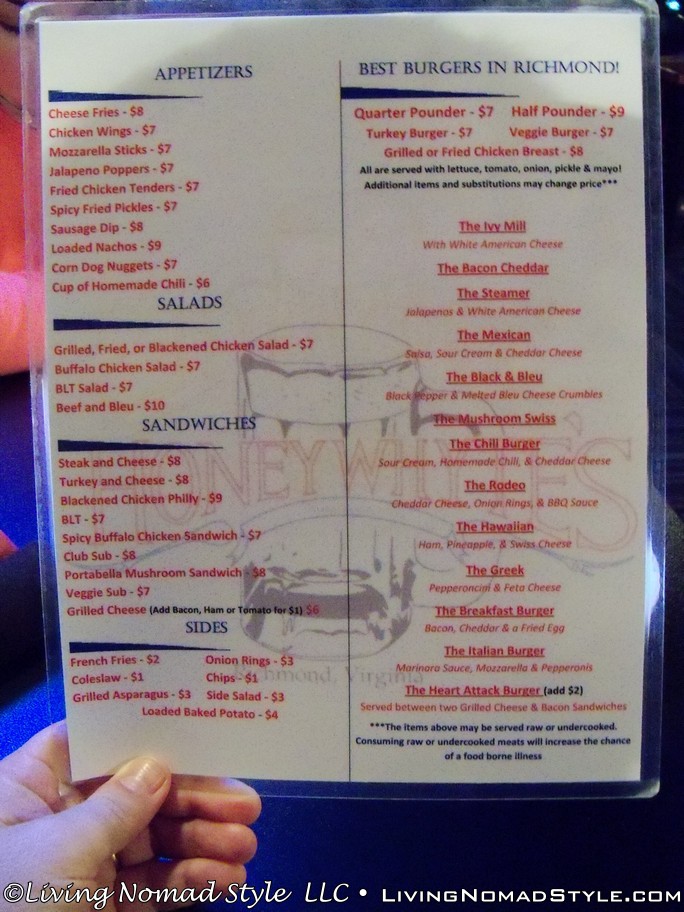 APPETIZERS
Cheese Fries - $8
Chicken Wings - $7
Mozzarella Sticks - $7
Jalapeno Poppers - $7
Fried Chicken Tenders - $7
Spicy Fried Pickles - $7
Sausage Dip - $8
Loaded Nachos - $9
Corn Dog Nuggets - $7
Cup of Homemade Chili - $6
SALADS
Grilled, Fried, or Blackened Chicken Salad - $7
Buffalo Chicken Salad - $7
BLT Salad - $7
Beef and Bleu - $10
SANDWICHES
Steak and Cheese - $8
Turkey and Cheese - $8
Blackened Chicken Philly - $9
BLT - $7
Spicy Buffalo Chicken Sandwich - $7
Club Sub - $8
Portabella Mushroom Sandwich - $8
Veggie Sub - $7
Grilled Cheese (Add Bacon, Ham or Tomato for $1) $6
SIDES
French Fries - $2 Onion Rings - $3
Coleslaw - $1 Chips - $1
Grilled Asparagus - $3 Side Salad - $3
Loaded Baked Potato - $4
BEST BURGERS IN RICHMOND!
Quarter Pounder - $7 Half Pounder - $9
Turkey Burger - $7 Veggie Burger - $7
Grilled or Fried Chicken Breast - $8
All are served with lettuce, tomato, onion, pickle & mayo!
Additional items and substitutions may change price***
The Ivy Mill
With White American Cheese
The Bacon Cheddar
The Steamer
Jalapenos & White American Cheese
The Mexican
Salsa, Sour Cream & Cheddar Cheese
The Black & Bleu
Black Pepper & Melted Bleu Cheese Crumbles
The Mushroom Swiss
The Chili Burger
Sour Cream, Homemade Chili, & Cheddar Cheese
The Rodeo
Cheddar Cheese, Onion Rings, & BBQ Sauce
The Hawaiian
Ham, Pineapple, & Swiss Cheese
The Greek
Pepperoncini & Feta Cheese
The Breakfast Burger
Bacon, Cheddar & a Fried Egg
The Italian Burger
Marinara Sauce, Mozzarella & Pepperonis
The Heart Attack Burger (add $2)
Served between two Grilled Cheese & Bacon Sandwiches
***The items above may be served raw or undercooked.
Consuming raw or undercooked meats will increase the chance
of a food borne illness
Richmond, Virginia
©Living Nomad Style LLC • LivingNomadStyle.com